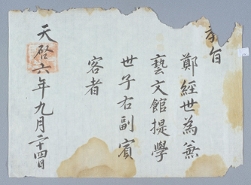 有旨
鄭經世爲兼
藝文館提學
世子右副賓
客者
天啓六年九月二十四日